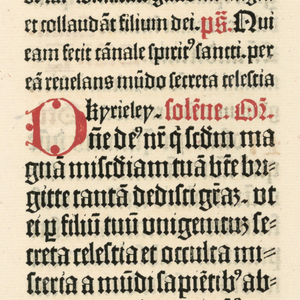 et collaudāt filium dei. ps̄. Qui
eam fecit cānale spiritꝰ sancti. per
eā reuelans mūdo secreta celestia
kyrieley. solēne. Or̄.
Dn̄e deꝰ nr̄ q̄ scd̄m ma
gnā miscd̄iam tuā btē bri
gitte tantā dedisti gr̄az. vt
ei ꝑ filiū tuū vnigenituꝫ se-
creta celestia et occulta mi-
steria a mūdi sapiētibꝰ ab-